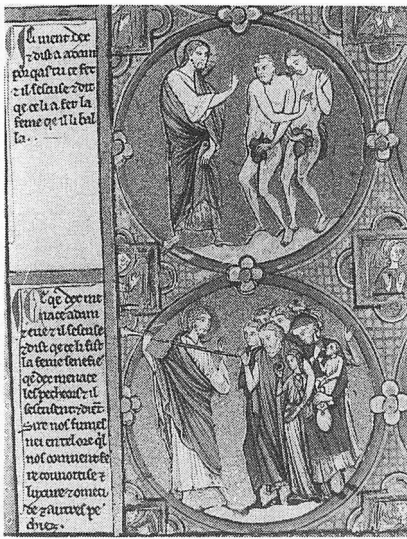 Ci uient dex
⁊ dist a adam
por qas tu ce fet
⁊ il sescuse ⁊ dit
qe ce li a fet la
feme qe il li bal
la..
Ce qe dex me
nace adam
⁊ eue ⁊ il sescuse
⁊ dist qe ce li fist
la feme senefie
qe dex menace
les pecheors ⁊ il
sescusent ⁊ diēt
Sire nos fumes
nei en tel ore qil
nos couuient fe
re couuoitise ⁊
luxure ⁊ omeci
de ⁊ autres pe
chiez.